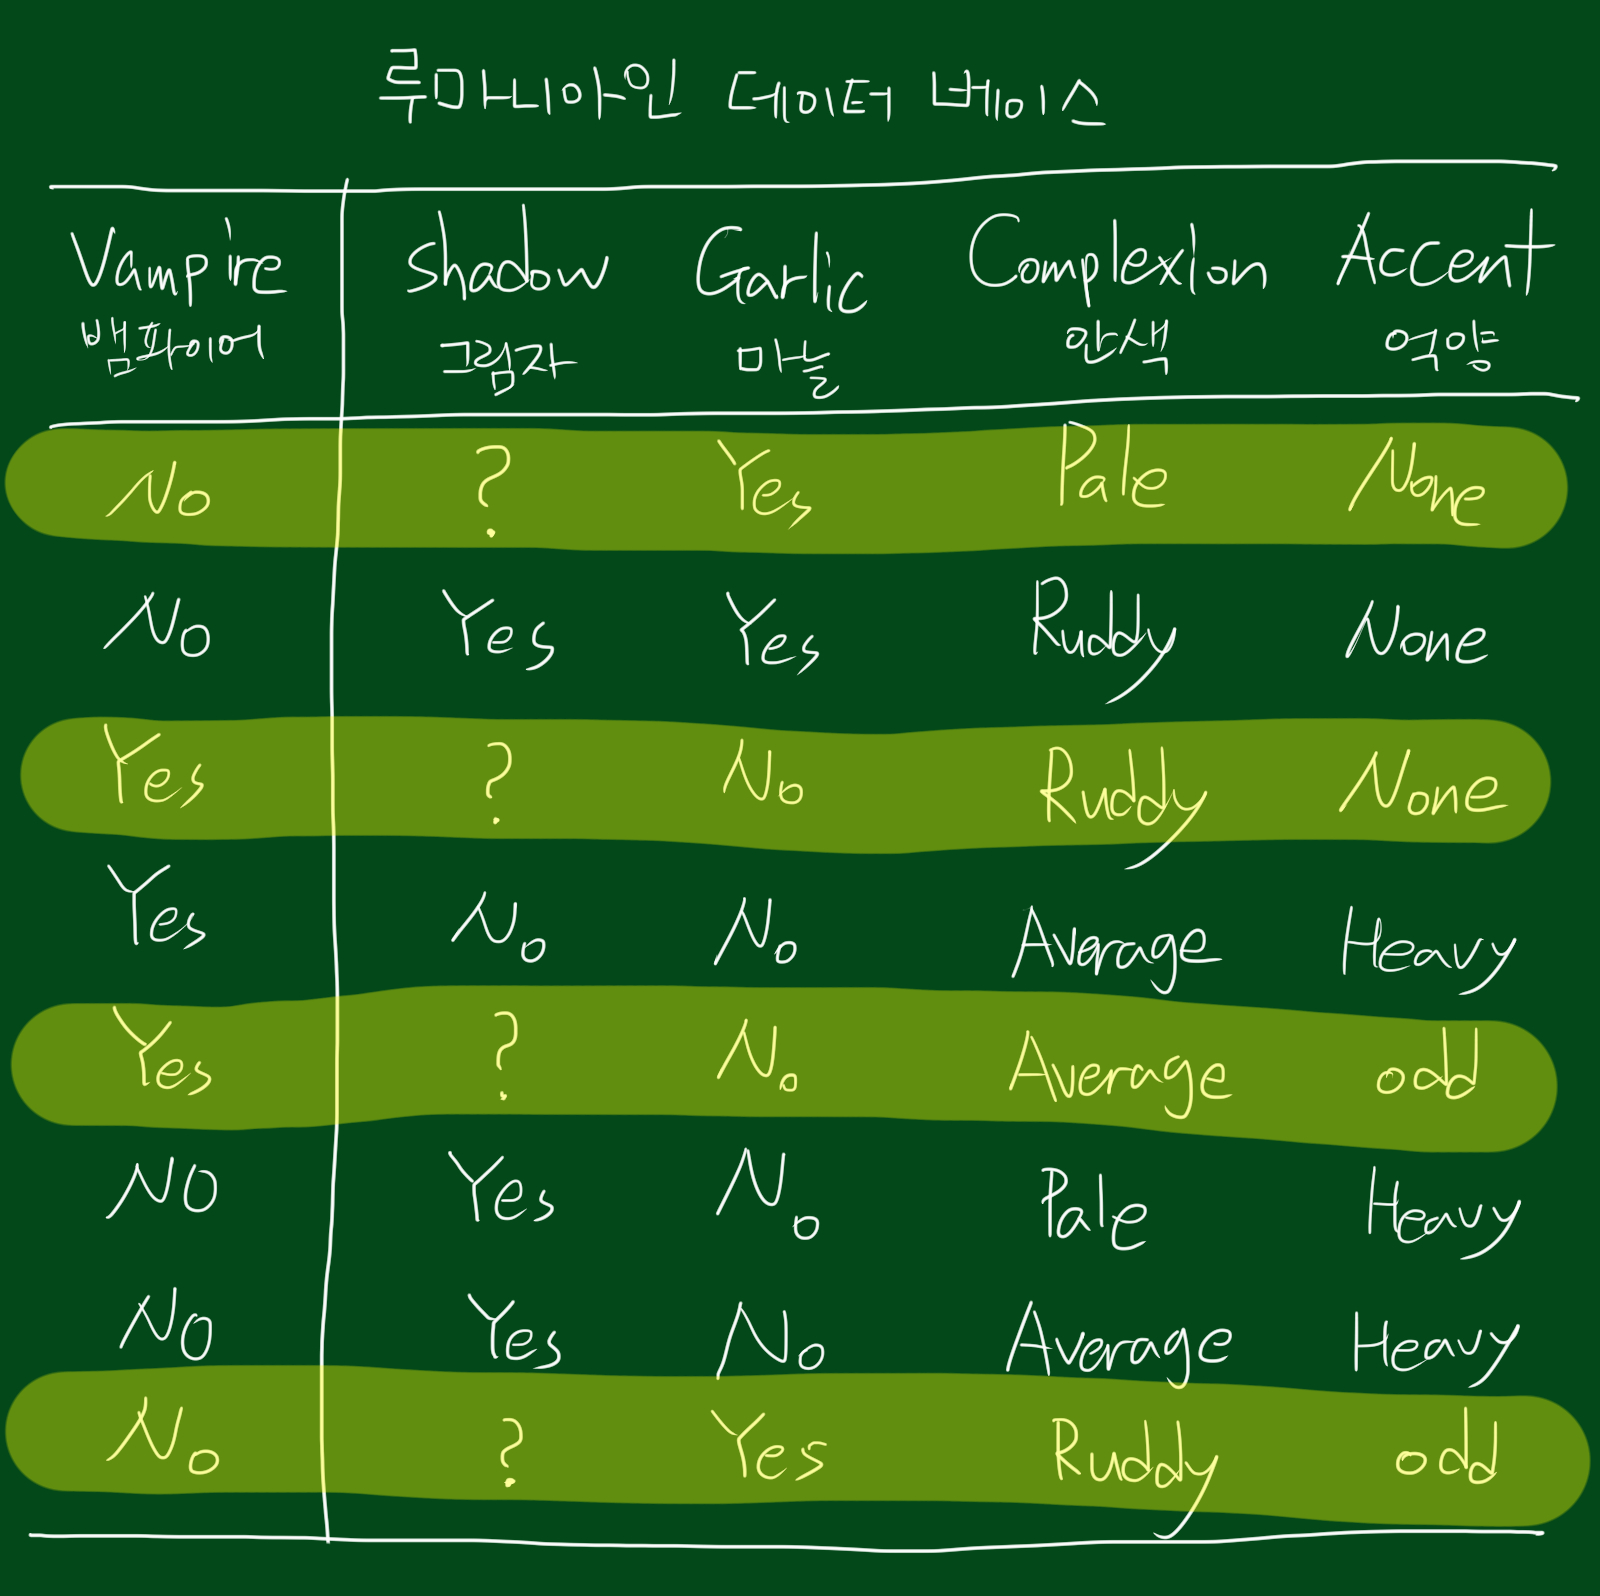 루마니아인 데이터 베이스
Vampire Shadow Garlic Complexion Accent
뱀파이어 그림자 마늘 안색 억양
No ? Yes Pale None
No Yes Yes Ruddy None
Yes ? No Ruddy None
Yes No No Average Heavy
Yes ? No Average odd
NO Yes No Pale Heavy
NO Yes No Average Heavy
No ? Yes Ruddy odd